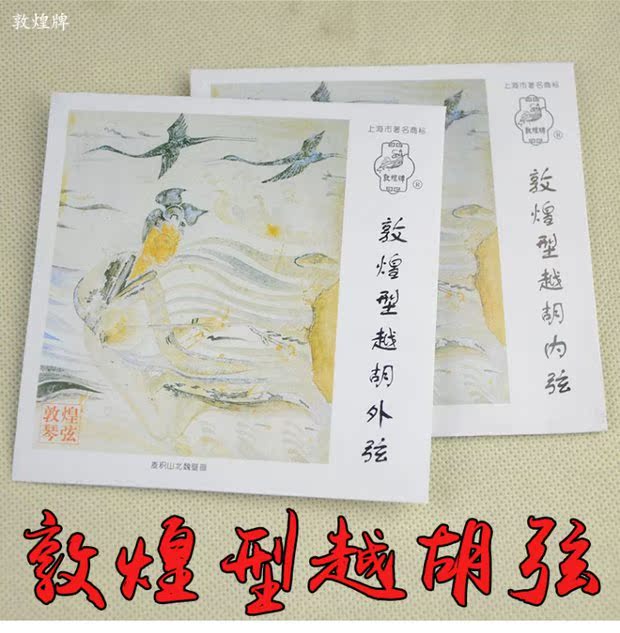 敦煌牌
上海市著名商标
敦煌牌
®
敦煌型越胡外弦
敦煌
琴弦
麦积山北魏壁画
上海市著名商标
敦煌牌
®
敦煌型越胡内弦
敦煌型越胡弦